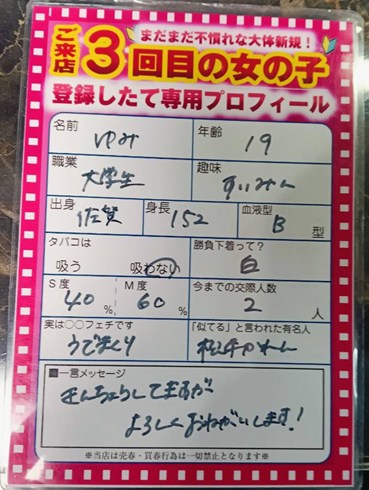 まだまだ不慣れな大体新規！
ご来店3回目の女の子
登録したて専用プロフィール
名前 ゆみ 年齢 19
職業 大学生 趣味 すいみん
出身 佐賀 身長 152 血液型 B 型
タバコは 勝負下着って？
吸う 吸わない 白
S度 M度 今までの交際人数
40% 60% 2人
実は○○フェチです 「似てる」と言われた有名人
うでまくり 松本かれん
■一言メッセージ
きんちょうしてますが
よろしくおねがいします！
※当店は売春・買春行為は一切禁止となります※